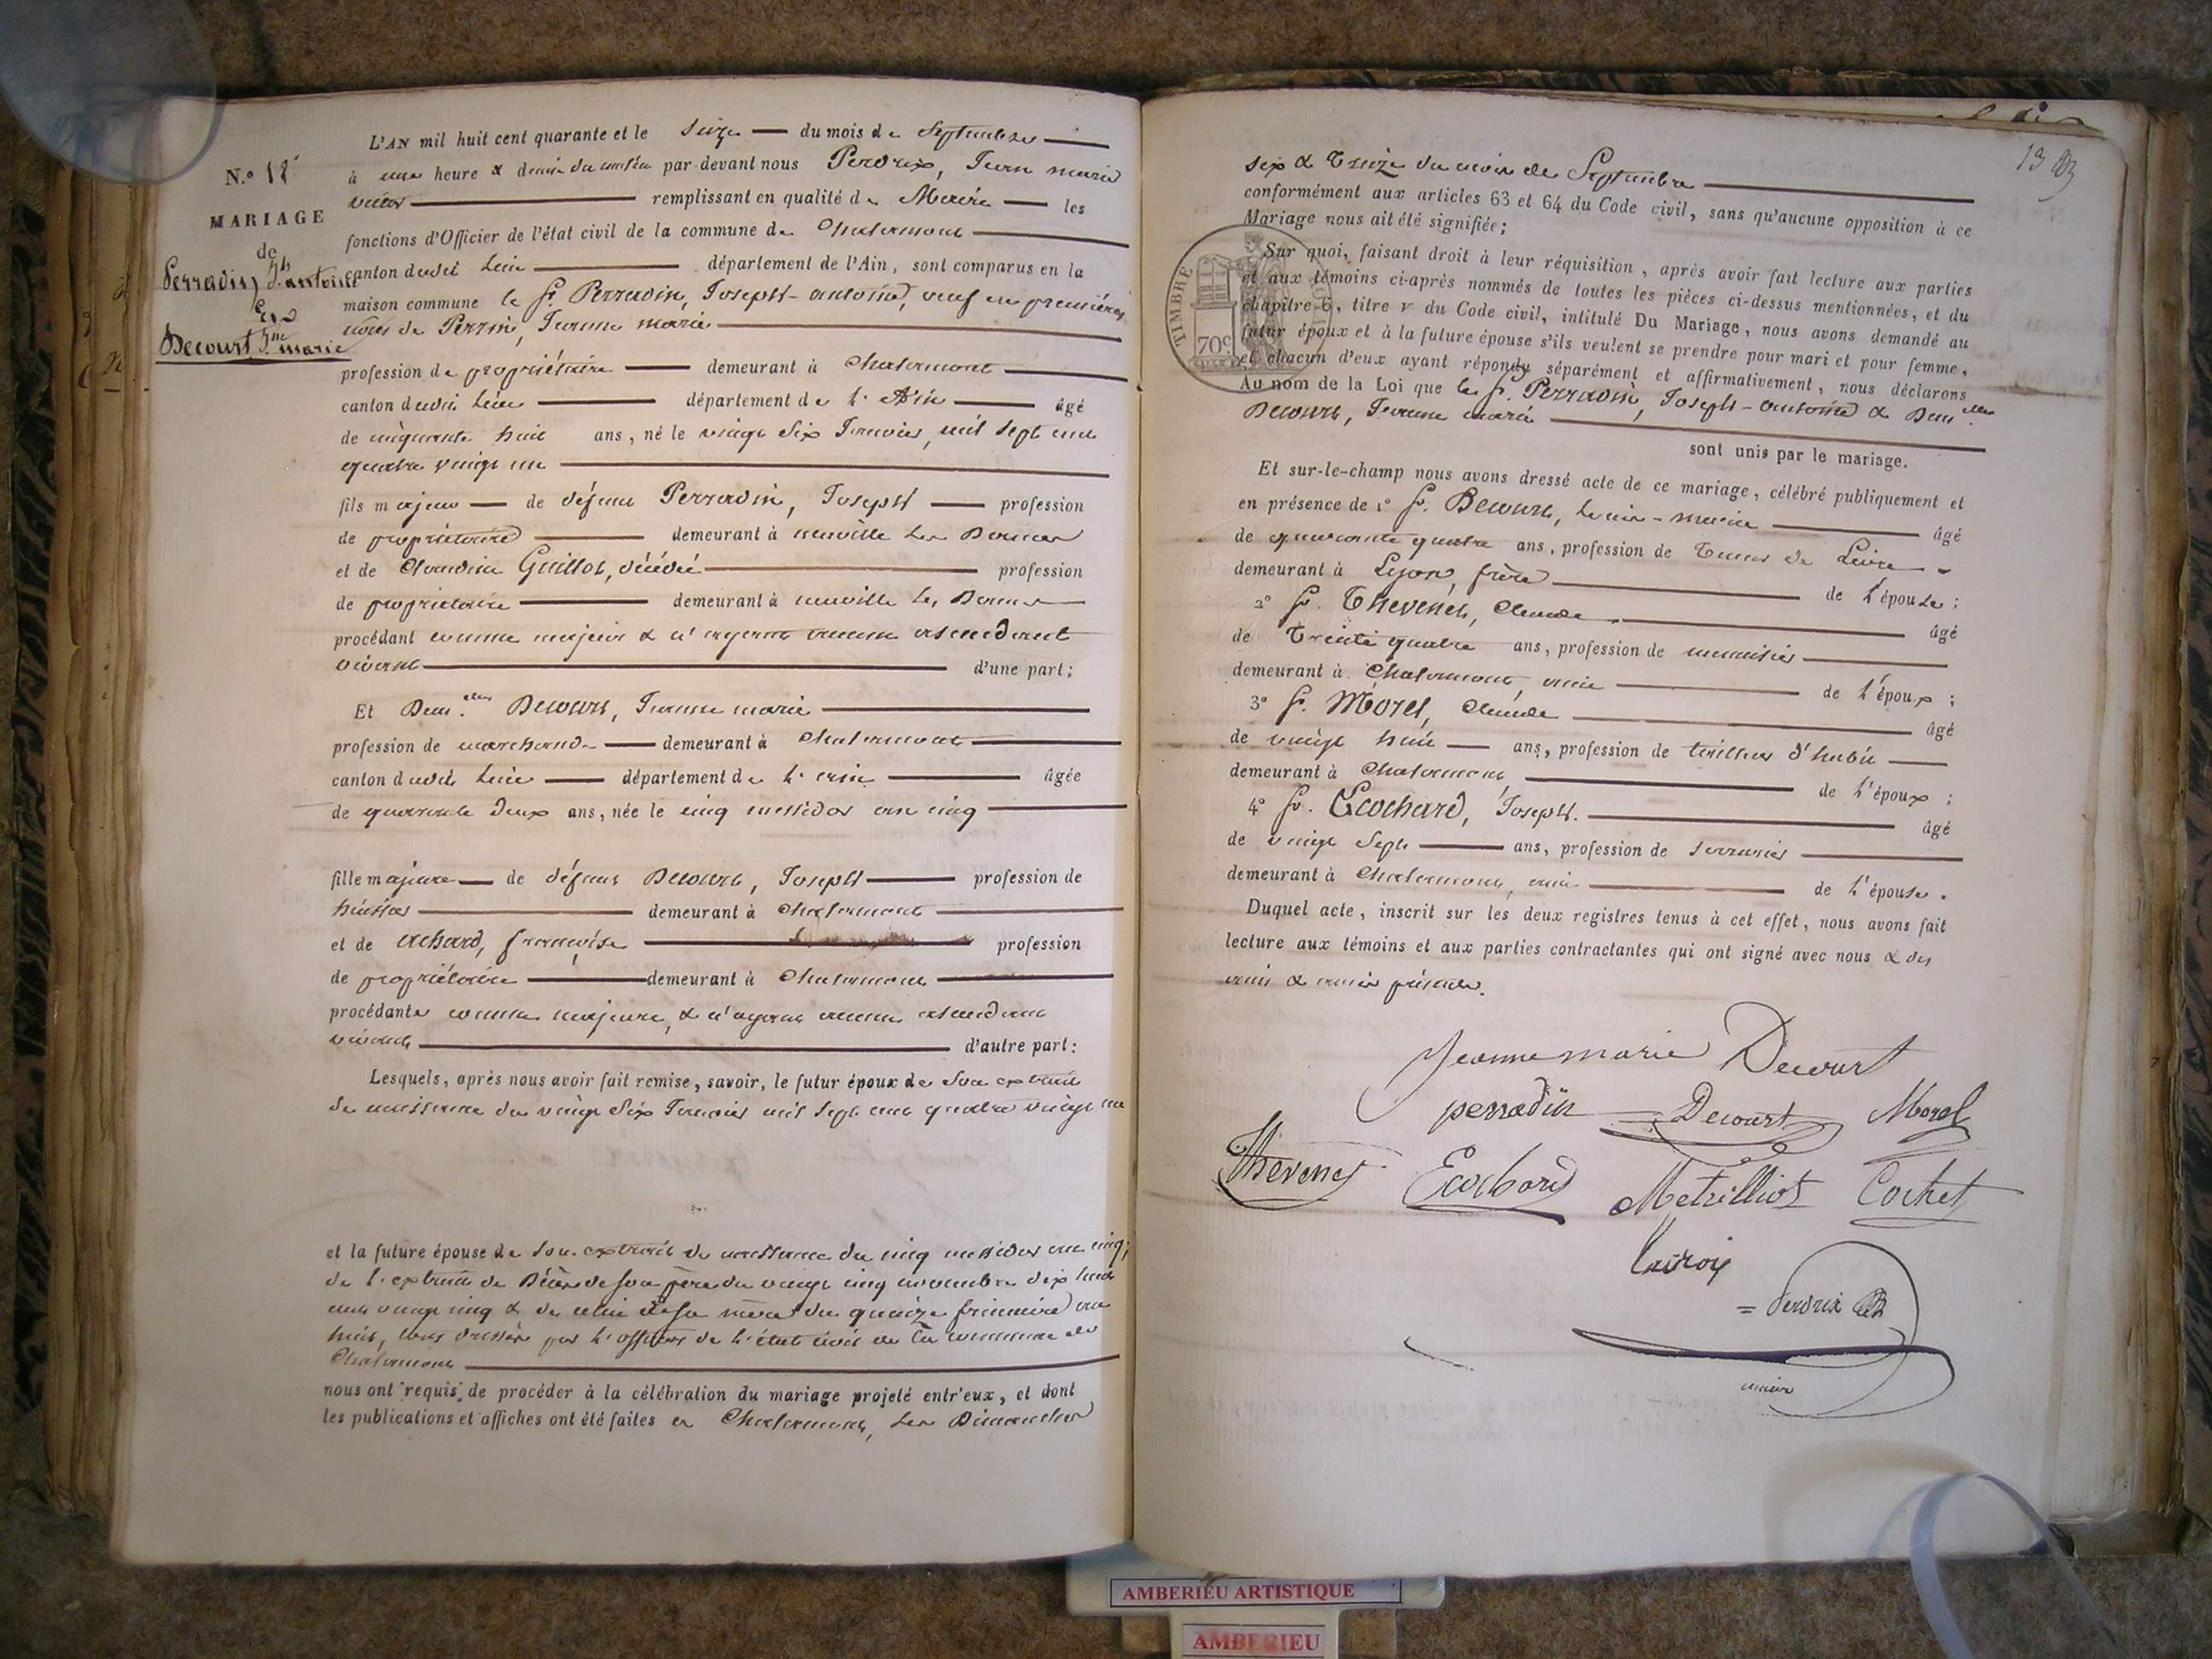 N.º 18
MARIAGE
de
Perradin Jh antoine
Et
Decourt Jne marie
L'AN mil huit cent quarante et le seize du mois de Septembre
à une heure & demie du matin par-devant nous Perdrix, Jean marie
victor remplissant en qualité de Maire les
fonctions d'Officier de l'état civil de la commune de Chalamont
canton dudit lieu département de l'Ain, sont comparus en la
maison commune le Sr. Perradin, Joseph-antoine, veuf en premières
noces de Perrin, Jeanne marie
profession de propriétaire demeurant à Chalamont
canton dudit lieu département de l'Ain âgé
de cinquante huit ans, né le vingt six Janvier, mil sept cent
quatre vingt un
fils majeur de défunt Perradin, Joseph profession
de propriétaire demeurant à neuville les Dames
et de Claudine Guillot, décédée profession
de propriétaire demeurant à neuville les Dames
procédant comme majeur & n'ayant aucun ascendant
vivant d'une part;
Et Demelle Decourt, Jeanne marie
profession de marchande demeurant à Chalamont
canton dudit lieu département de l'ain âgée
de quarante deux ans, née le cinq messidor an cinq
fille majeure de défunt Decourt, Joseph profession de
huissier demeurant à Chalamont
et de achard, françoise profession
de propriétaire demeurant à Chalamont
procédante comme majeure, & n'ayant aucun ascendant
vivant d'autre part:
Lesquels, après nous avoir fait remise, savoir, le futur époux de son extrait
de naissance du vingt six Janvier mil sept cent quatre vingt un
et la future épouse de son extrait de naissance du cinq messidor an cinq;
de l'extrait de Décès de son père du vingt cinq novembre dix huit
cent vingt cinq & de celui de sa mère du quinze frimaire an
huit, tous dressés par l'officier de l'état civil de la commune de
Chalamont
nous ont requis de procéder à la célébration du mariage projeté entr'eux, et dont
les publications et affiches ont été faites à Chalamont, les Dimanches
13
six & treize du mois de Septembre
conformément aux articles 63 et 64 du Code civil, sans qu'aucune opposition à ce
Mariage nous ait été signifiée;
TIMBRE
70c
Sur quoi, faisant droit à leur réquisition, après avoir fait lecture aux parties
et aux témoins ci-après nommés de toutes les pièces ci-dessus mentionnées, et du
chapitre 6, titre v du Code civil, intitulé Du Mariage, nous avons demandé au
futur époux et à la future épouse s'ils veulent se prendre pour mari et pour femme,
et chacun d'eux ayant répondu séparément et affirmativement, nous déclarons
Au nom de la Loi que le Sr. Perradin, Joseph-antoine & Demelle
Decourt, Jeanne marie
sont unis par le mariage.
Et sur-le-champ nous avons dressé acte de ce mariage, célébré publiquement et
en présence de 1º Sr. Decourt, Louis-marie âgé
de quarante quatre ans, profession de teneur de Livre
demeurant à Lyon, frère de l'épouse;
2º Sr. Thevenet, Claude âgé
de trente quatre ans, profession de menuisier
demeurant à Chalamont, ami de l'époux;
3º Sr. Morel, Claude âgé
de vingt huit ans, profession de tailleur d'habit
demeurant à Chalamont de l'époux;
4º Sr. Ecochard, Joseph. âgé
de vingt sept ans, profession de serrurier
demeurant à Chalamont, ami de l'épouse.
Duquel acte, inscrit sur les deux registres tenus à cet effet, nous avons fait
lecture aux témoins et aux parties contractantes qui ont signé avec nous & des
amis présents.
Jeanne marie Decourt
perradin Decourt Morel
Thevenet Ecochard Metrilliot Cochet
Perdrix
maire
AMBERIEU ARTISTIQUE
AMBERIEU